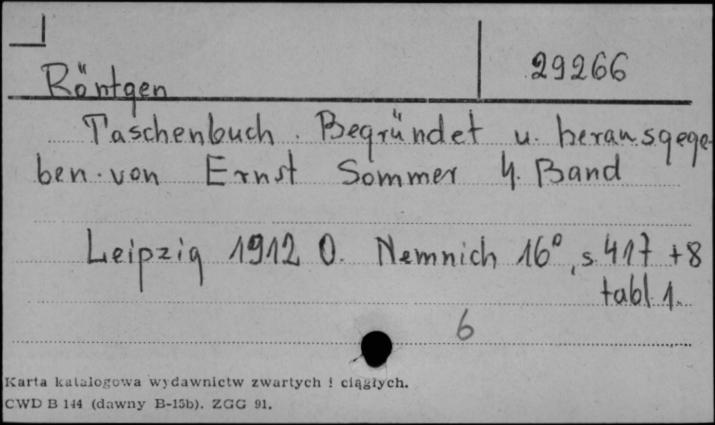 29266
Röntgen
Taschenbuch. Begründet u. herausgege-
ben von Ernst Sommer 4. Band
Leipzig 1912 O. Nemnich 16°, s. 417 + 8
tabl 1.
6
Karta katalogowa wydawnictw zwartych i ciągłych.
CWD B 144 (dawny B-15b). ZGG 91.